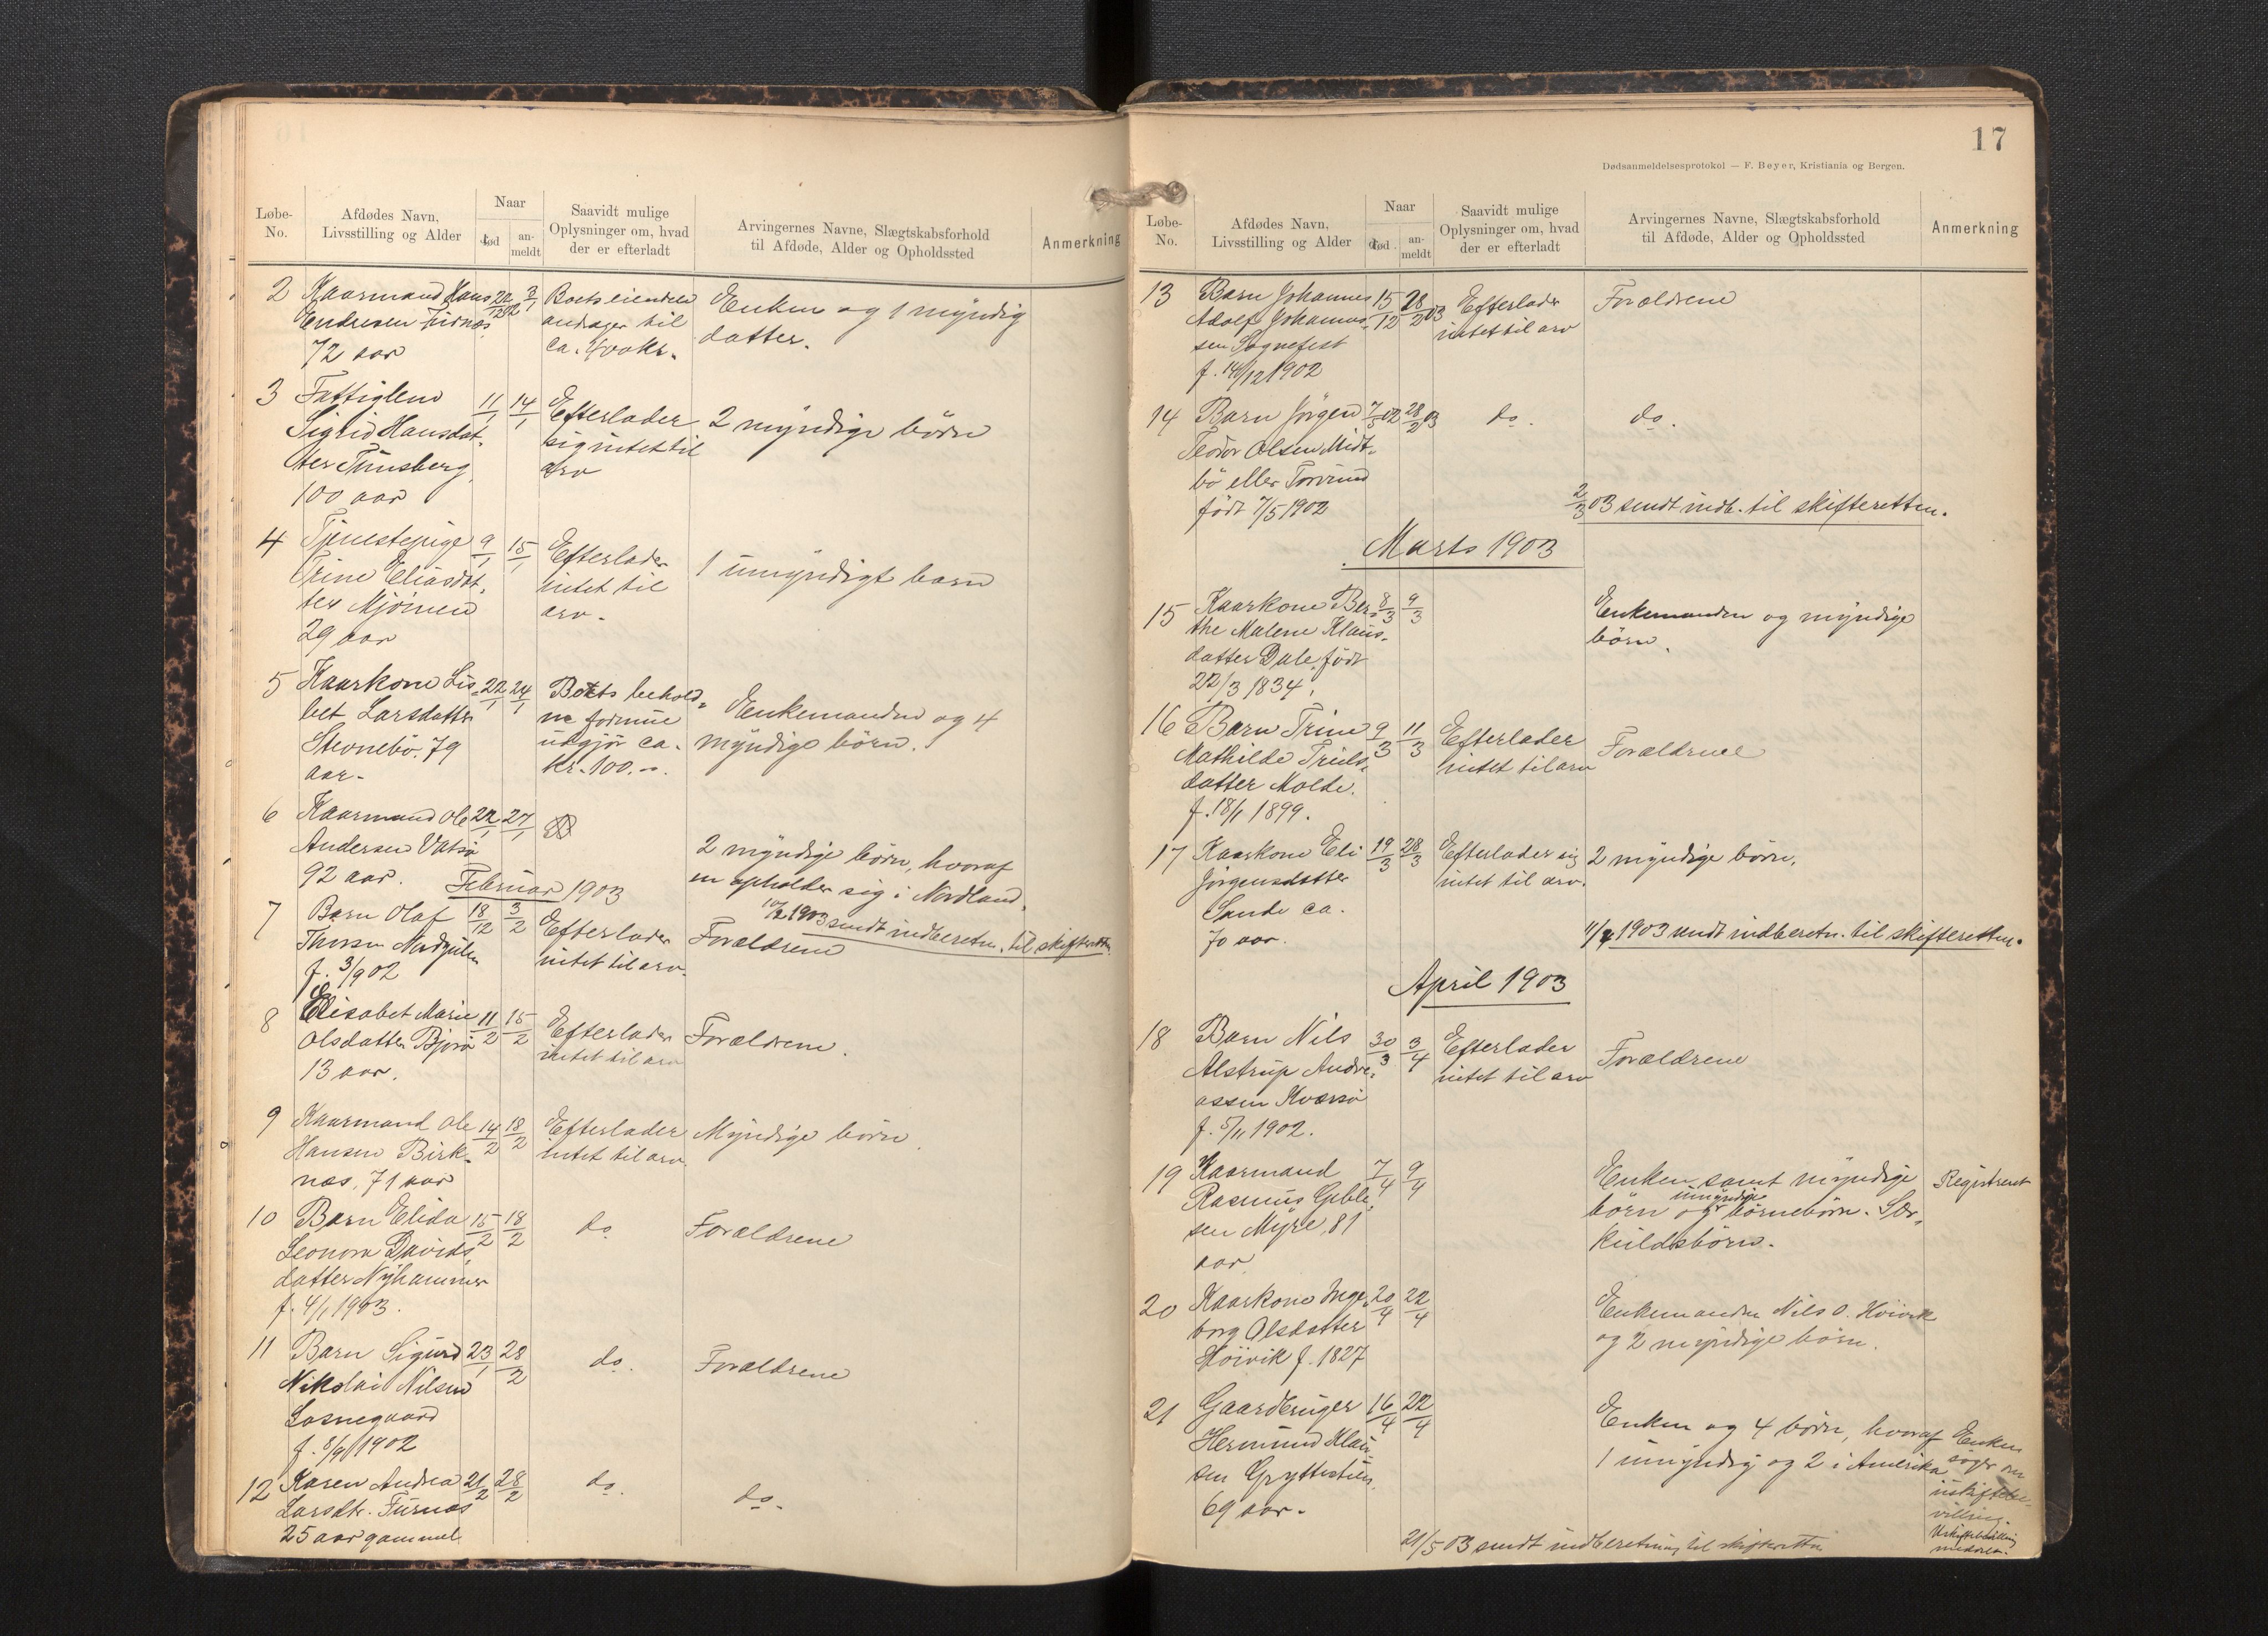 Løbe-
No.
Afdødes Navn,
Livsstilling og Alder
Naar
død
an-
meldt
Saavidt mulige
Oplysninger om, hvad
der er efterladt
Arvingernes Navne, Slægtskabsforhold
til Afdøde, Alder og Opholdssted
Anmerkning
2 Kaarmand Hans
Endresen Furnæs
72 aar
Boets eiendele
andrager til
ca. 400 kr.
Enken og 1 myndig
datter.
3 Fattiglem 11/1 14/1
Sigrid Hansdat-
ter Tunsberg
100 aar
Efterlader
sig intet til
arv
2 myndige børn
4 Tjenestepige 9/1 15/1
Trine Eliasdat-
ter Mjömen
29 aar
Efterlader
intet til
arv.
1 umyndigt barn
5 Kaarkone Lis- 22/1 24/1
bet Larsdatter
Stenebö. 79
aar.
Boets behold-
ne formue
udgjör ca.
kr. 100.-
Enkemanden og 4
myndige börn.
6 Kaarmand Ole 22/1 27/1
Andersen Vatsö
92 aar.
2 myndige börn, hvoraf
en opholder sig i Nordland.
1903 sendt indberetn. til skifteretten
Februar 1903
7 Barn Olaf 18/12 3/2
Thorsen Nordgulen
f. 3/9 02
Efterlader
intet til arv.
Forældrene
8 Elisabet Marie 11/2 15/2
Olsdatter Bjorö
13 aar.
Efterlader
intet til arv
Forældrene.
9 Kaarmand Ole 14/2 18/2
Hansen Birk-
næs, 71 aar
Efterlader
intet til arv.
Myndige börn.
10 Barn Elida 15/2 18/2
Leonora Davids-
datter Nyhammer
f. 4/1 1903.
do Forældrene
11 Barn Sigurd 23/1 28/2
Nikolai Nilsen
Losnegaard
f. 8/9 1902
do. Forældrene
12 Karen Andrea 21/2 28/2
Larsdtr. Furnæs
25 aar gammel
do. do.
17
Dødsanmeldelsesprotokol — F. Beyer, Kristiania og Bergen.
Løbe-
No.
Afdødes Navn,
Livsstilling og Alder
Naar
død
an-
meldt
Saavidt mulige
Oplysninger om, hvad
der er efterladt
Arvingernes Navne, Slægtskabsforhold
til Afdøde, Alder og Opholdssted
Anmerkning
13 Barn Johannes 15/12 28/2 03
Adolf Johannes-
sen Sognefest
f. 14/12 1902
Efterlader
intet til arv
Forældrene
14 Barn Jörgen 7/5 02 28/2 03
Teodor Olsen Midt-
bö eller Torvund
födt 7/5 1902
do. do.
2/3 03 sendt indb. til skifteretten.
Marts 1903
15 Kaarkone Ber- 8/3 9/3
the Malene Klaus-
datter Dale, födt
22/3 1834.
Enkemanden og myndige
börn.
16 Barn Trine 9/3 11/3
Mathilde Truls-
datter Molde.
f. 18/1 1899.
Efterlader
intet til arv
Forældrene
17 Kaarkone Eli 19/3 28/3
Jörgensdatter
Sande ca.
70 aar.
Efterlader sig
intet til arv.
2 myndige börn.
11/4 1903 sendt indberetn. til skifteretten.
April 1903
18 Barn Nils 30/3 3/4
Alstrup Andre-
assen Kversö
f. 5/11 1902.
Efterlader
intet til arv
Forældrene
19 Kaarmand 7/4 9/4
Rasmus Gable-
sen Myre, 81
aar
Enken samt myndige
börn og umyndige börnebörn. Sær-
kuldsbörn.
Registreret
20 Kaarkone Inge- 20/4 22/4
borg Olsdatter
Höivik f. 1827
Enkemanden Nils O. Höivik
og 2 myndige börn.
21 Gaardbruger 16/4 22/4
Hermund Klau-
sen Gryttestuen,
69 aar.
Enken og 4 börn, hvoraf
1 umyndig og 2 i Amerika
Enken
söger om
uskiftebe-
villing.
Uskiftebevilling
meddelt.
21/5 03 sendt indberetning til skifteretten